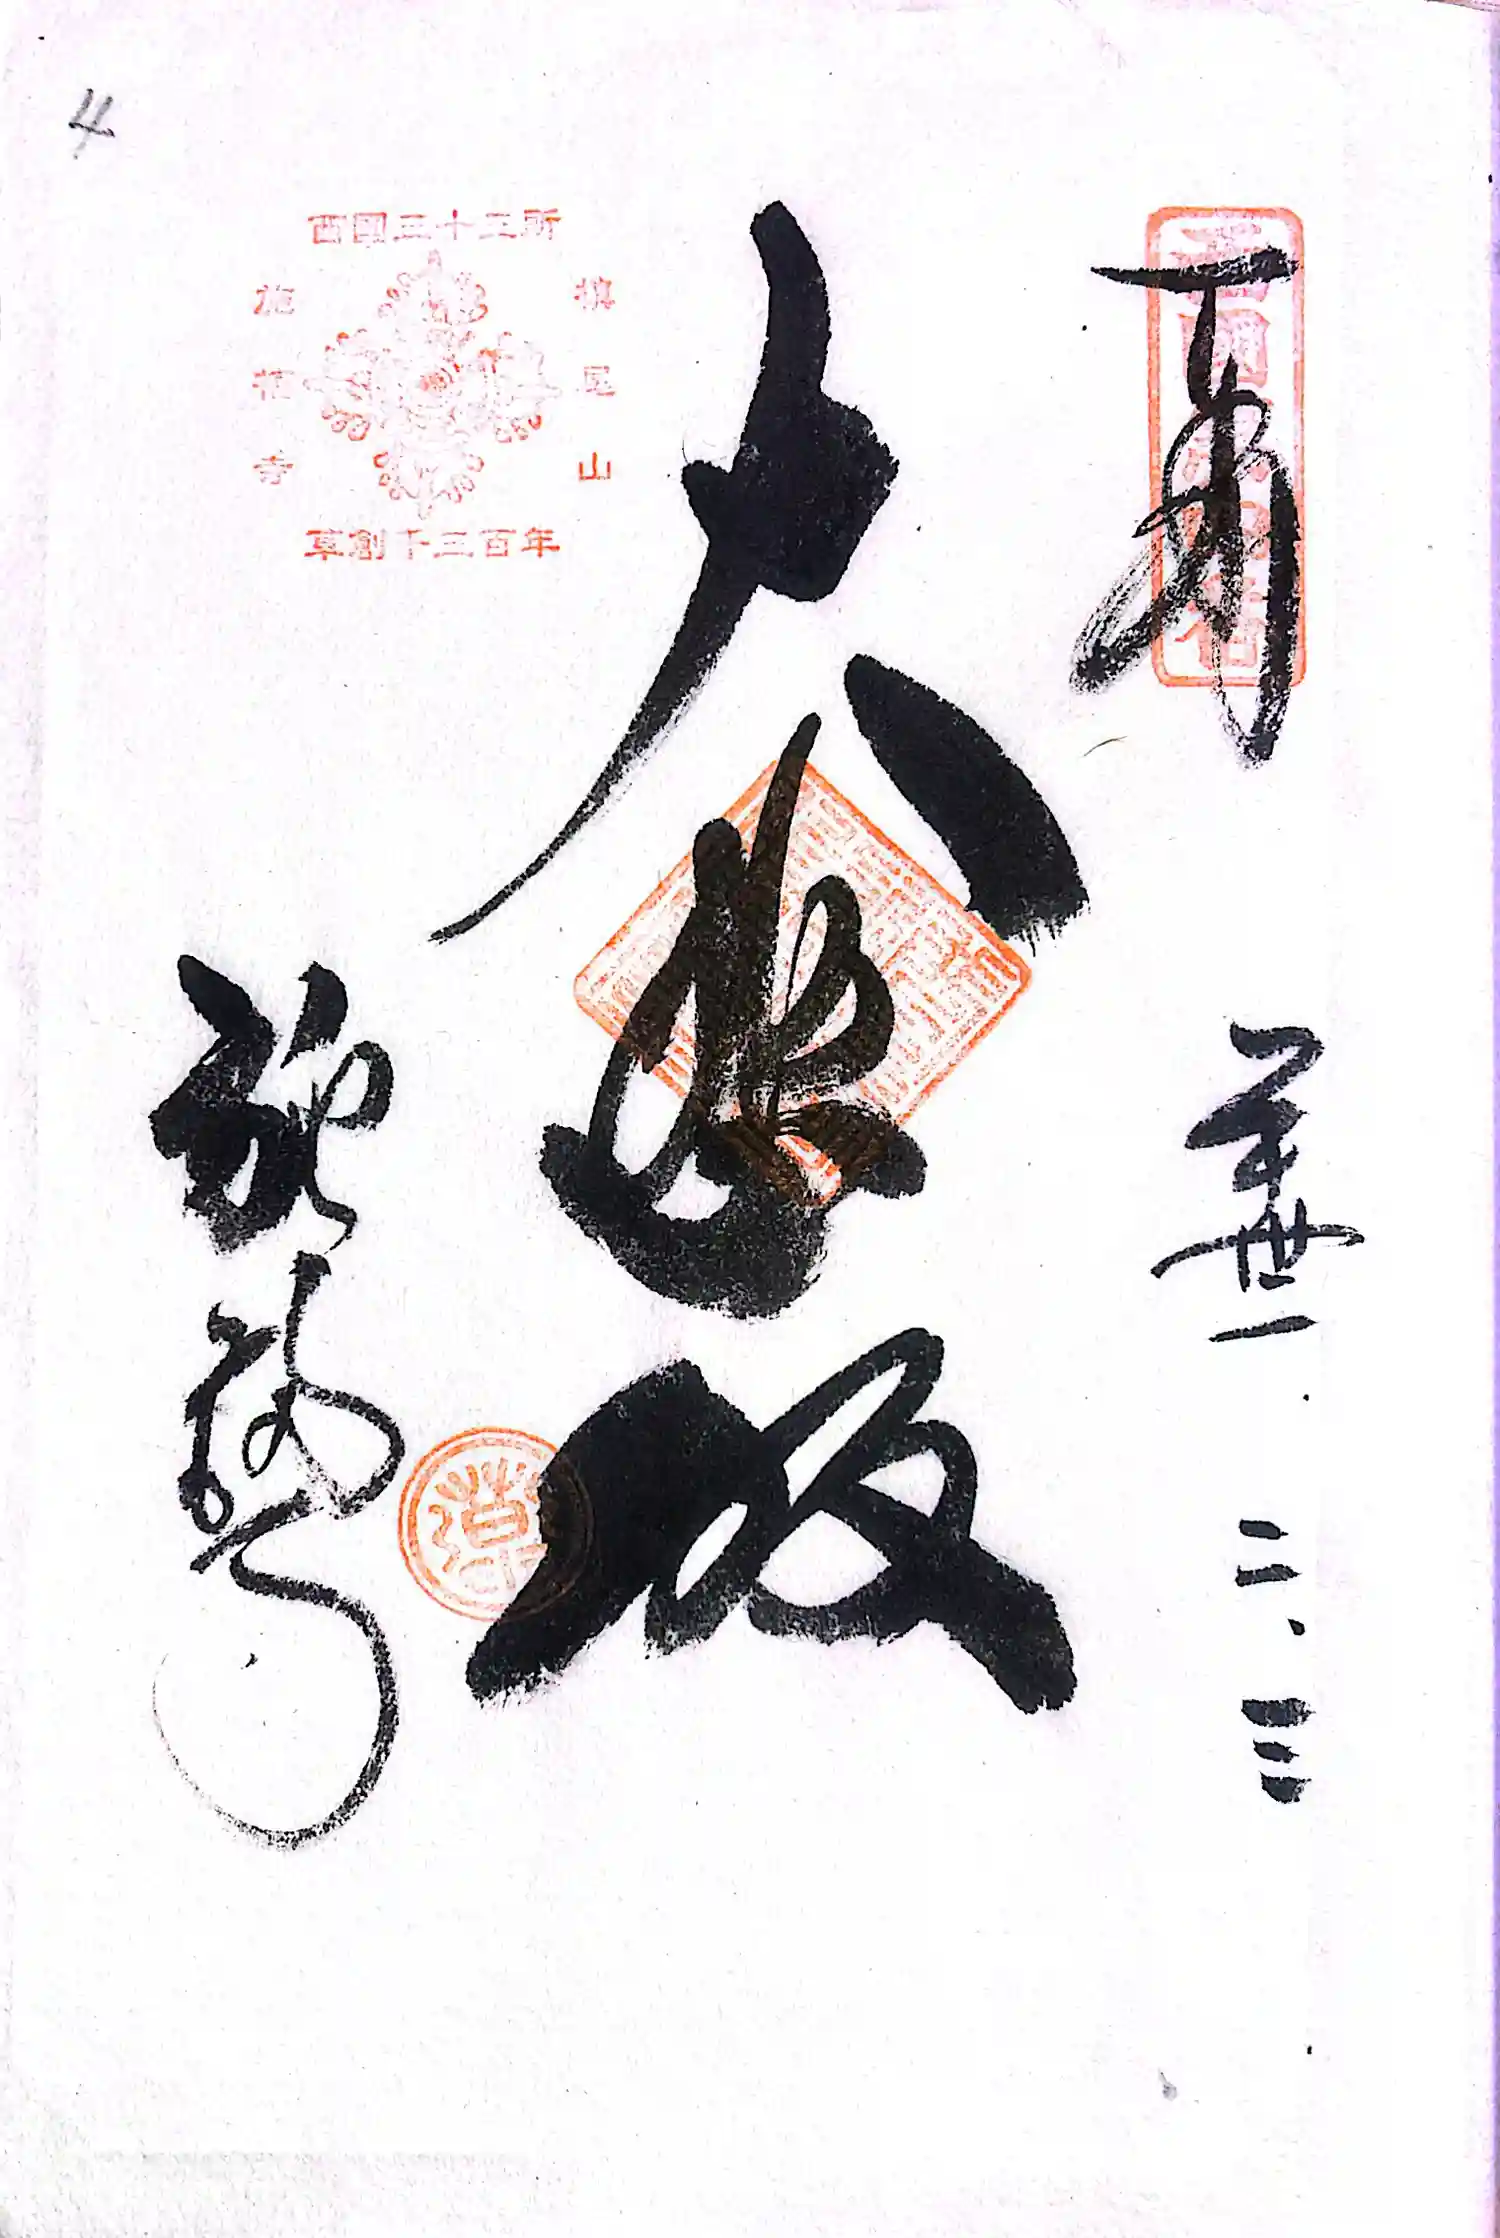 4
西國三十三所
槇尾山
施福寺
草創千三百年
奉拝
平卅一.二.三
大悲殿
施福寺